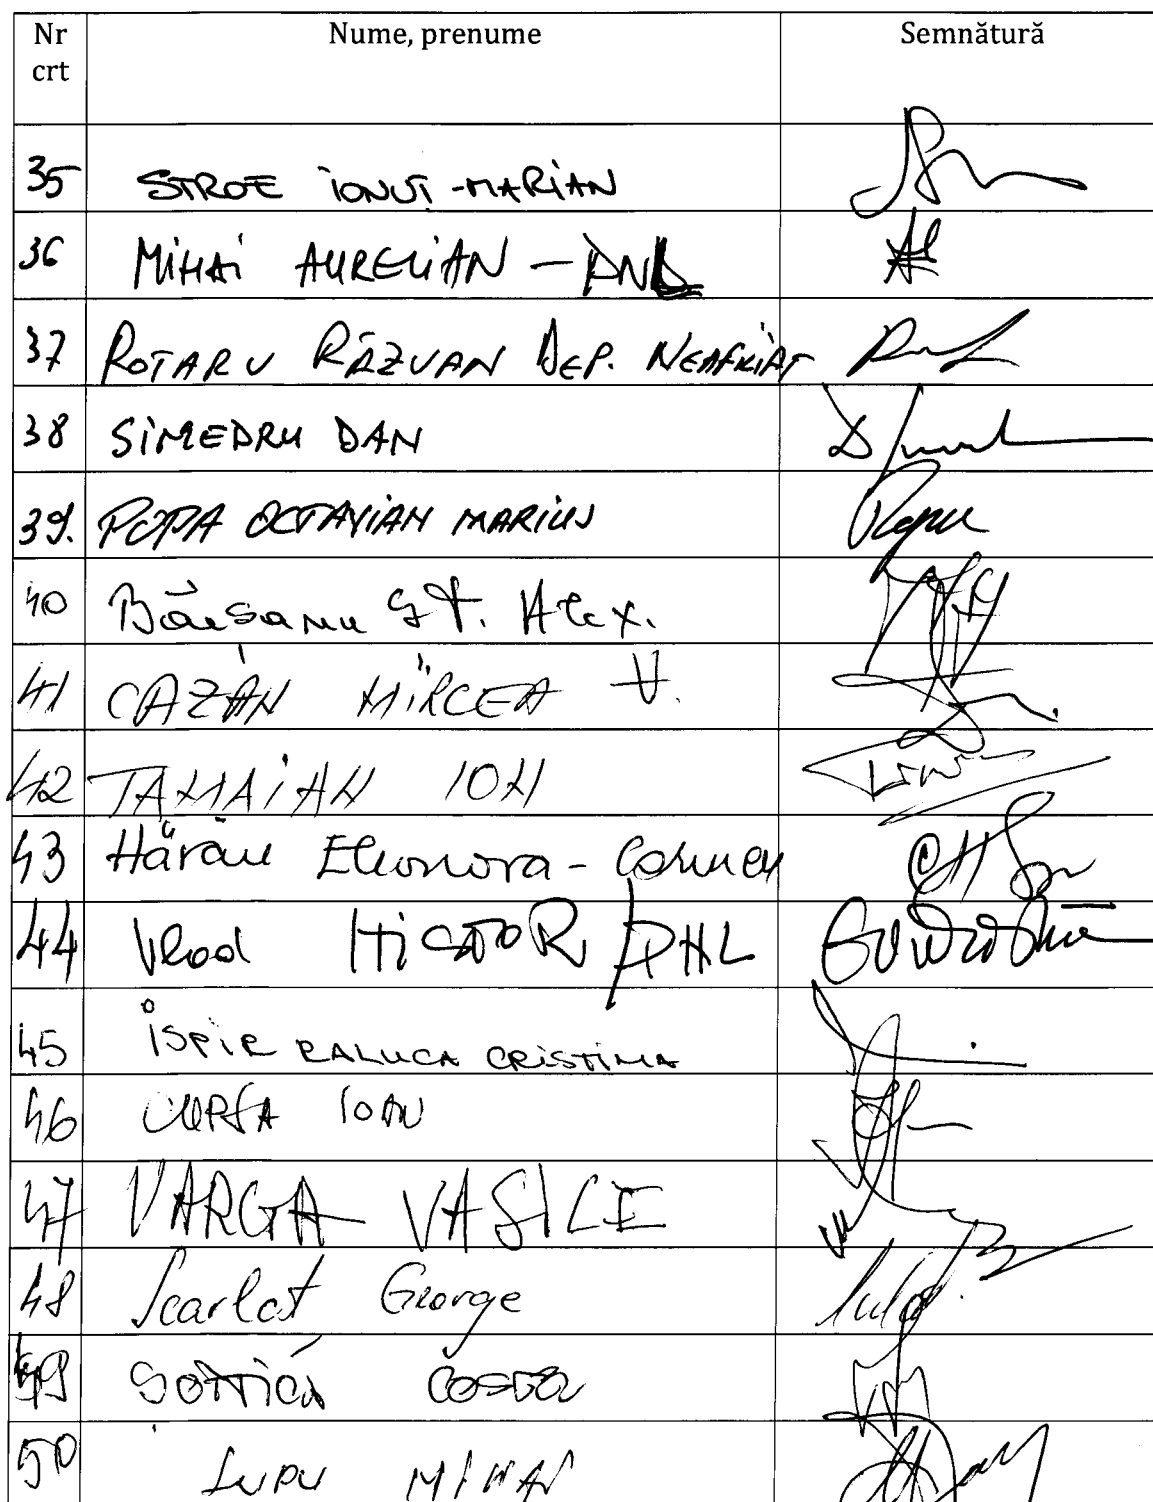 Nr crt Nume, prenume Semnătură
35 STROE IONUȚ-MARIAN
36 MIHAI AURELIAN - PNL
37 ROTARU RĂZVAN DEP. NEAFILIAT
38 SIMEDRU DAN
39. POPA OCTAVIAN MARIUS Popa
40 Bărsanu Șt. Alex.
41 CAZAN MIRCEA V.
42 TAMAIAN ION
43 Hărău Eleonora - Carmen
44 Vlad NISTOR / PNL
45 ISPIR RALUCA CRISTINA
46 CUPȘA IOAN
47 VARGA VASILE
48 Scarlat George
49 COSTEL
50 LUPU MIHAI